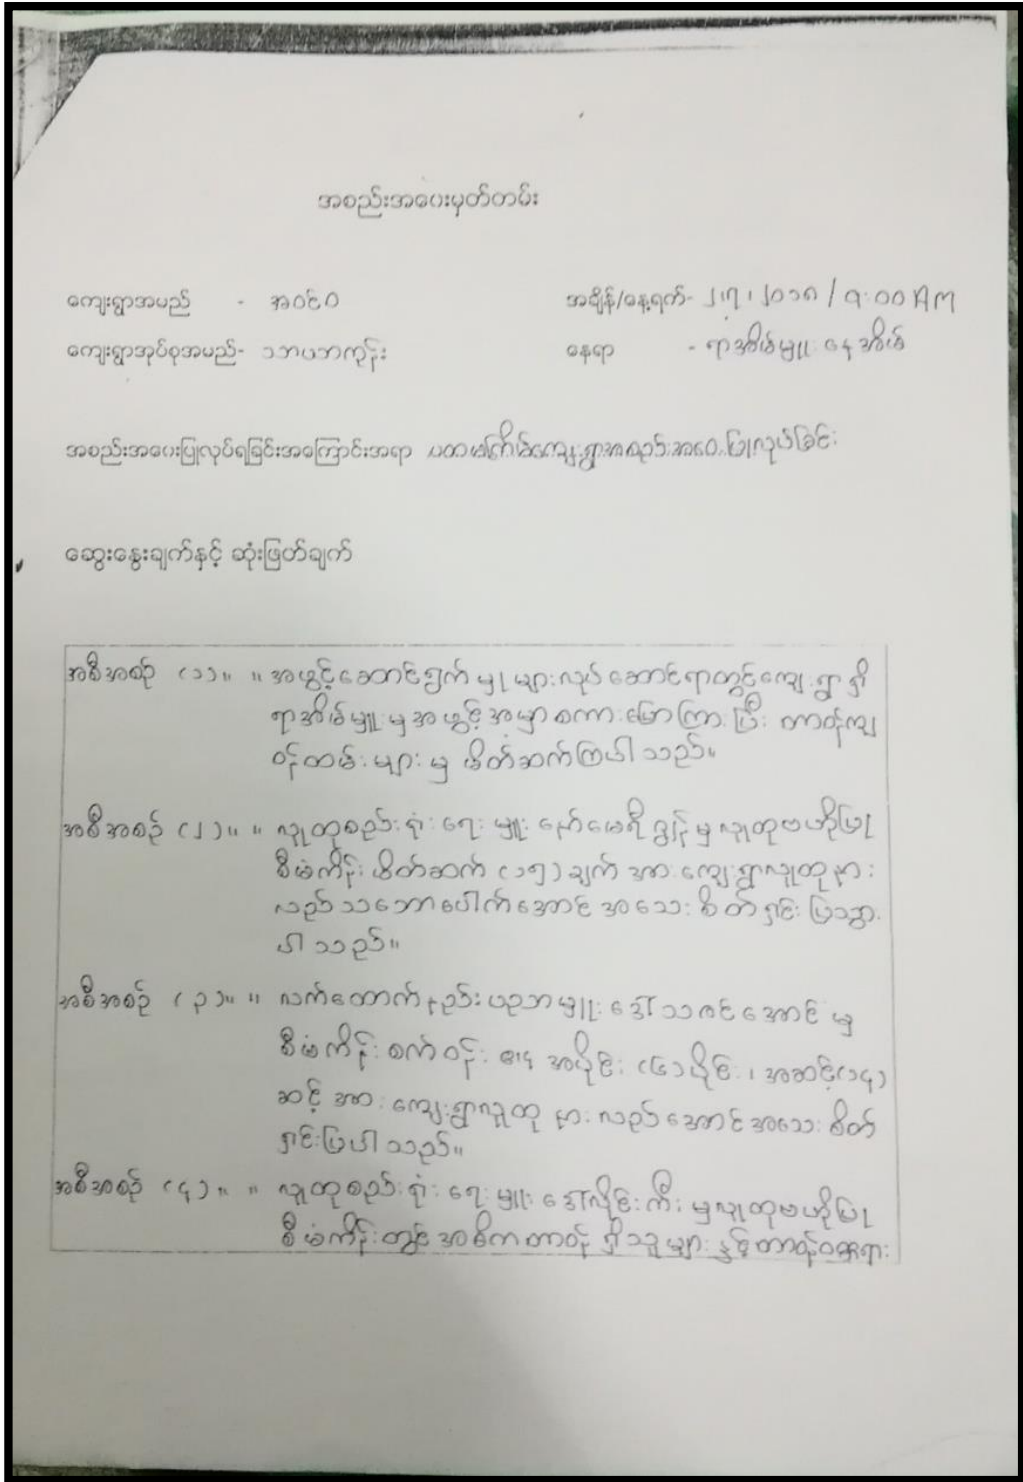 အစည်းအဝေးမှတ်တမ်း
ကျေးရွာအမည် - အဝင်ဝ အချိန်/နေ့ရက်- ၂.၇.၂၀၁၈ / ၇:၀၀ AM
ကျေးရွာအုပ်စုအမည်- သာယာကုန်း နေရာ - ရာအိမ်မှူး နေအိမ်
အစည်းအဝေးပြုလုပ်ရခြင်းအကြောင်းအရာ ပထမအကြိမ်ကျေးရွာအစည်းအဝေးပြုလုပ်ခြင်း
ဆွေးနွေးချက်နှင့် ဆုံးဖြတ်ချက်
အစီအစဉ် (၁)။ ။ အဖွင့်ဆောင်ရွက်မှုများလုပ်ဆောင်ရာတွင်ကျေးရွာရှိ
ရာအိမ်မှူးမှအဖွင့်အမှာစကားပြောကြားပြီး တာဝန်ကျ
ဝန်ထမ်းများမှ မိတ်ဆက်ကြပါသည်။
အစီအစဉ် (၂)။ ။ လူထုစည်းရုံးရေးမှူး နော်မေရီဂျွန်မှလူထုဗဟိုပြု
စီမံကိန်း မိတ်ဆက် (၁၅)ချက် အားကျေးရွာလူထုနား
လည်သဘောပေါက်အောင် အသေးစိတ်ရှင်းပြသွား
ပါသည်။
အစီအစဉ် (၃)။ ။ လက်ထောက်နည်းပညာမှူး ဒေါ်သဇင်အောင် မှ
စီမံကိန်း စက်ဝန်း ၏ အပိုင်း (၆)ပိုင်း၊ အဆင့်(၁၄)
ဆင့် အားကျေးရွာလူထု နားလည်အောင်အသေးစိတ်
ရှင်းပြပါသည်။
အစီအစဉ် (၄)။ ။ လူထုစည်းရုံးရေးမှူး ဒေါ်လှိုင်းကီးမှလူထုဗဟိုပြု
စီမံကိန်းတွင်အဓိကတာဝန်ရှိသူများနှင့်တာဝန်ဝတ္တရား